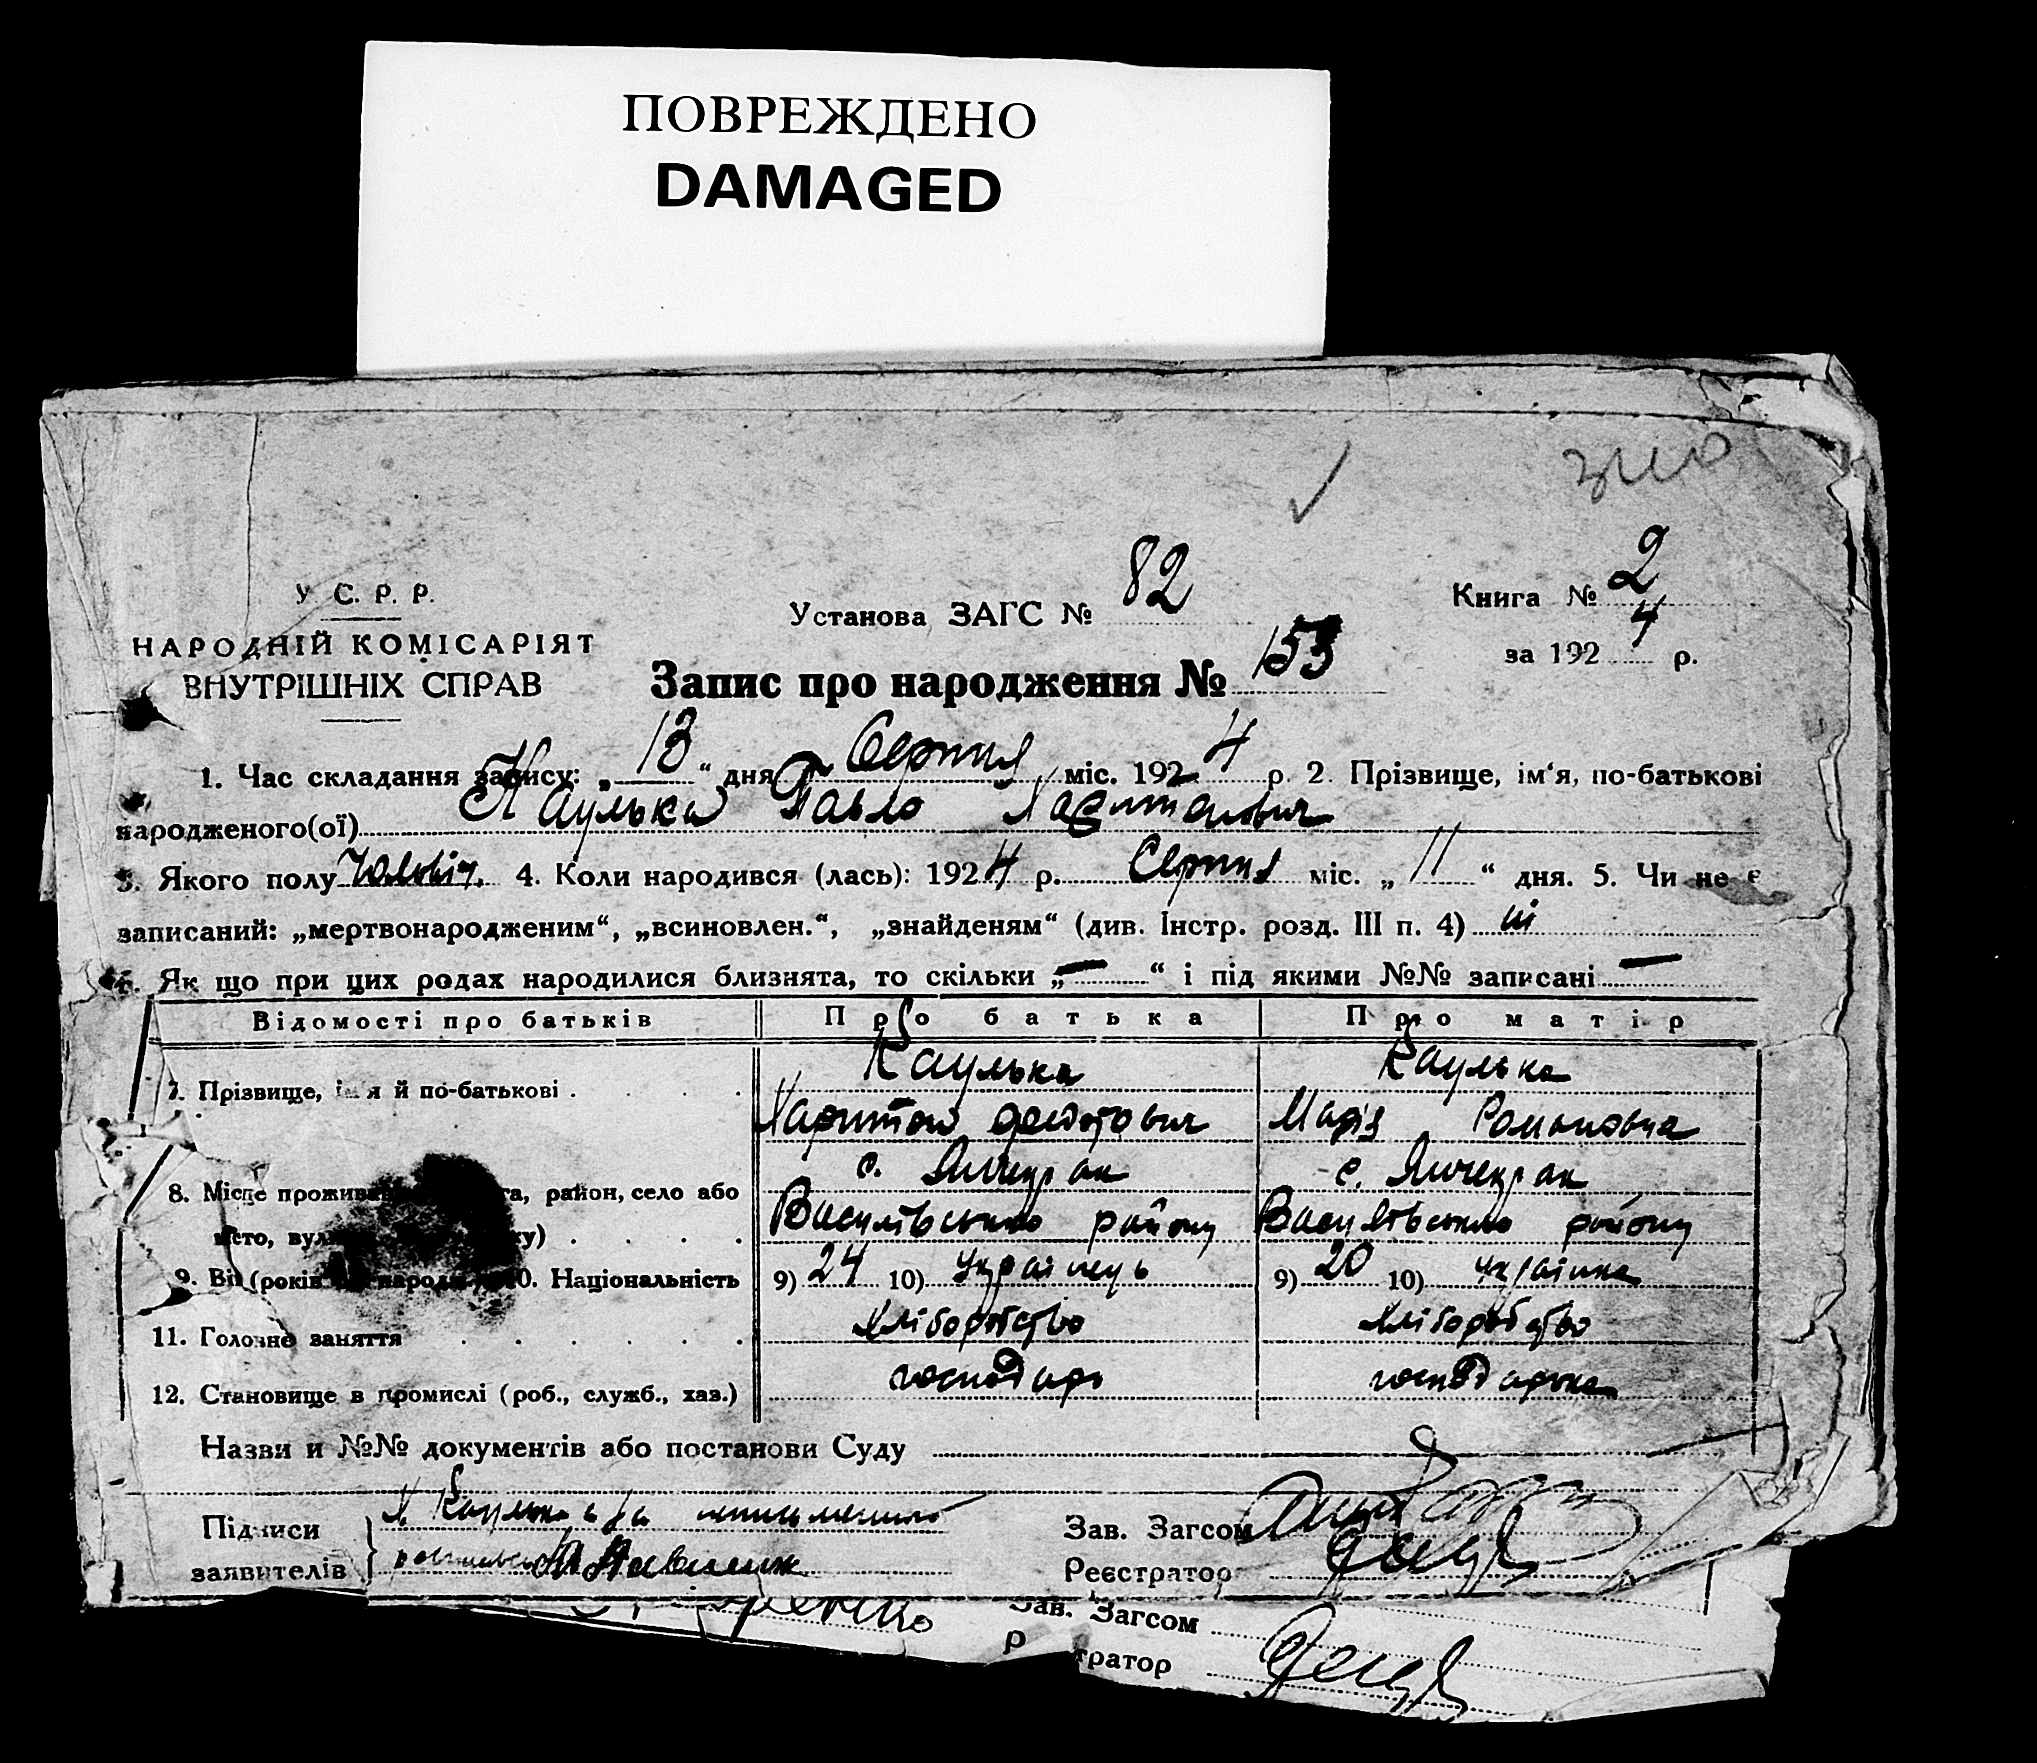 ПОВРЕЖДЕНО
DAMAGED
У С. Р. Р.
НАРОДНІЙ КОМІСАРІЯТ
ВНУТРІШНІХ СПРАВ
Установа ЗАГС № 82
Книга № 2
за 1924 р.
Запис про народження № 153
1. Час складання запису: „ 13 “ дня Серпня міс. 1924 р. 2. Прізвище, ім‘я, по-батькові
народженого(ої) Каулька Павло Харитонович
3. Якого полу чоловіч. 4. Коли народився (лась): 1924 р. Серпня міс. „ 11 “ дня. 5. Чи не є
записаний: „мертвонародженим“, „всиновлен.“, „знайденям“ (див. Інстр. розд. III п. 4) ні
6. Як що при цих родах народилися близнята, то скільки „ — “ і під якими №№ записані —
Відомості про батьків Про батька Про матір
7. Прізвище, ім я й по-батькові . . . . Каулька Каулька
Харитон Федотович Марія Романовна
8. Місце район, село або с. Янчекрак с. Янчекрак
Василівського району Василівського району
9. Вік (років 10. Національність 9) 24 10) Українець 9) 20 10) Українка
11. Головне заняття . . . . . . Хліборобство Хліборобство
12. Становище в промислі (роб., служб., хаз.) господарь господарька
Назви и №№ документів або постанови Суду
Підписи Х Каулька а за неписьменного
заявителів
Зав. Загсом
Реєстратор
Зав. Загсом
тратор